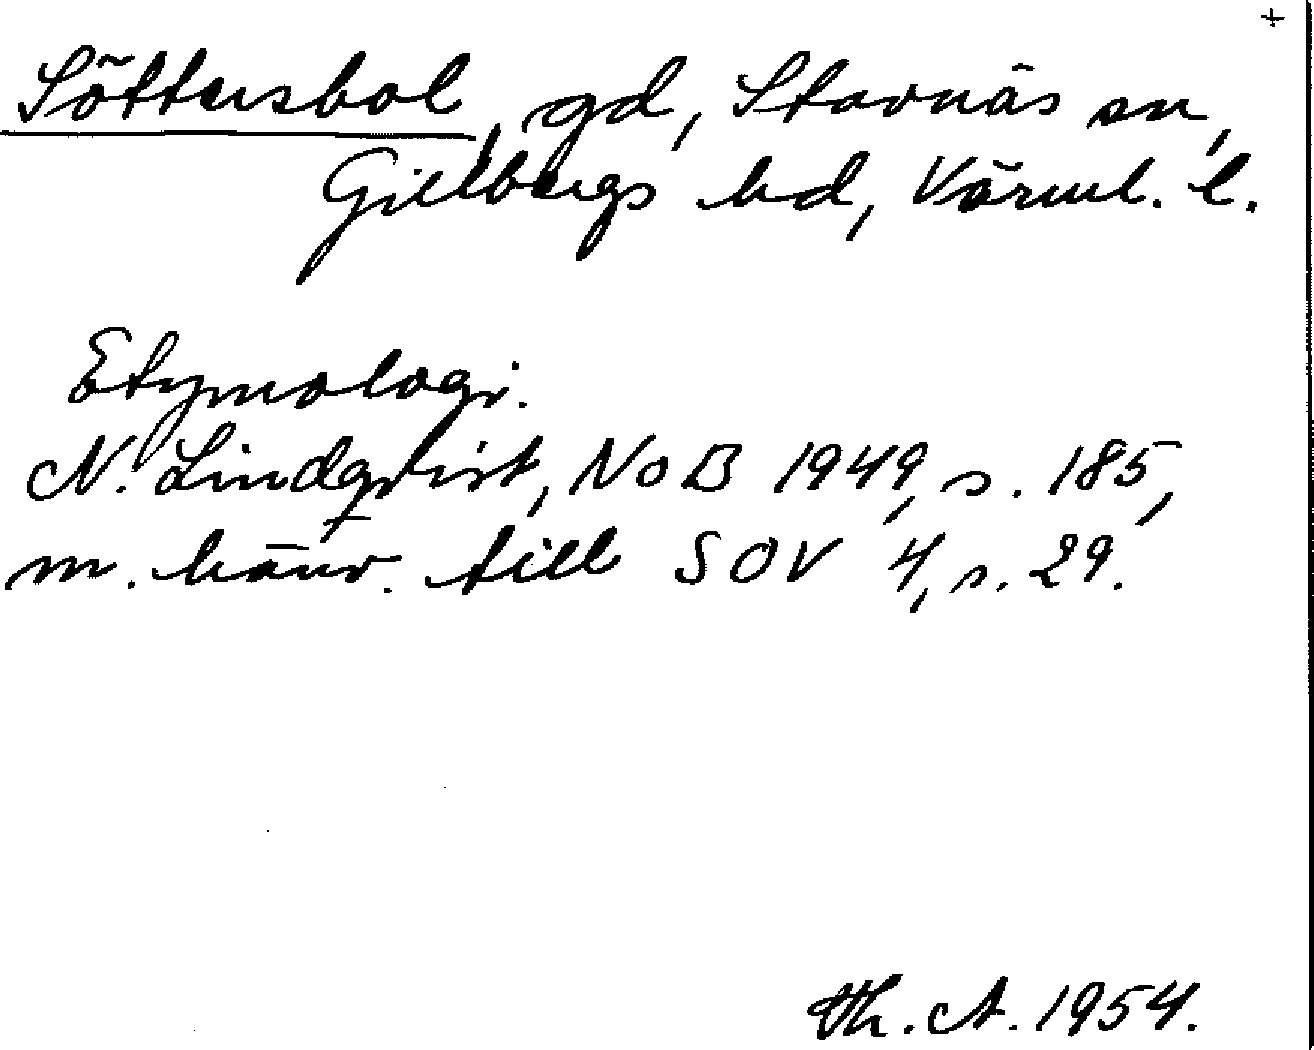 +
Söttersbol, gd, Stavnäs sn,
Gillbergs hd, Värml. l.
Etymologi.
N. Lindqvist, NoB 1949, s. 185,
m. hänv. till SOV 4, s. 29.
Th. A. 1954.